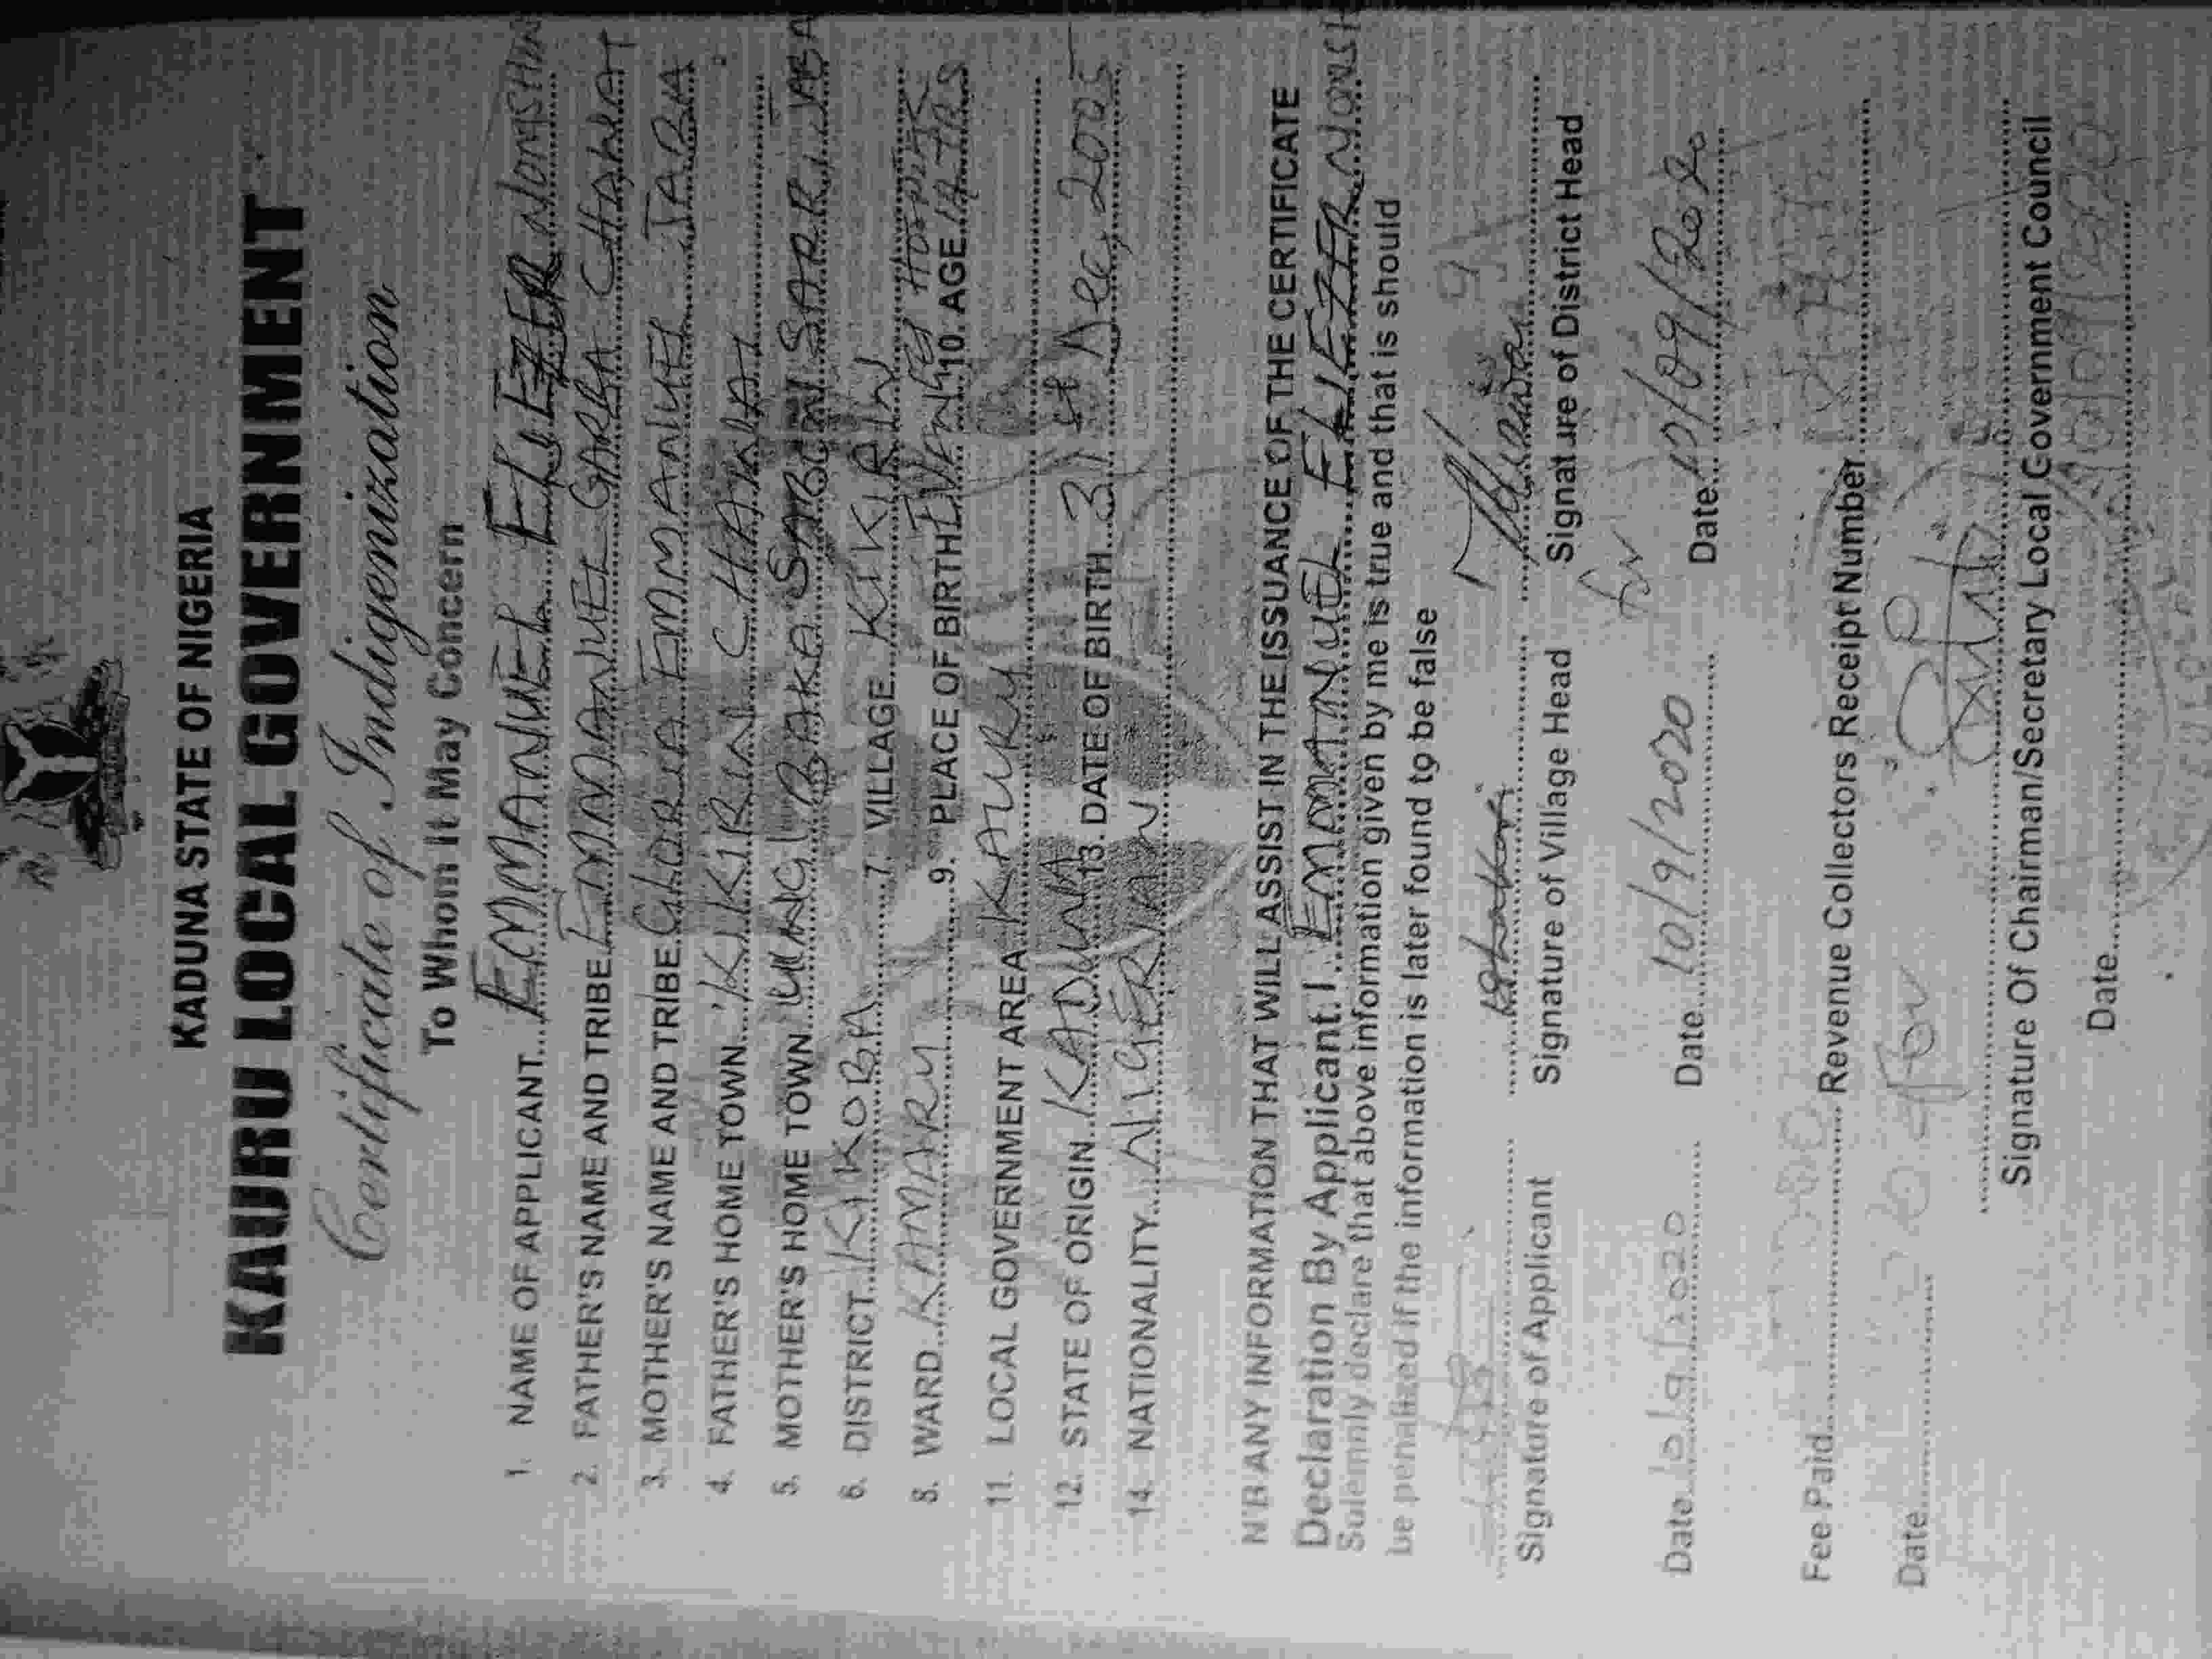 KADUNA STATE OF NIGERIA
KAURU LOCAL GOVERNMENT
Certificate of Indigenization
To Whom It May Concern
1. NAME OF APPLICANT... EMMANUEL ELIEZER NOMSHIN
2. FATHER'S NAME AND TRIBE. EMMANUEL GARBA CHAWAI
3. MOTHER'S NAME AND TRIBE. GLORIA EMMANUEL JABA
4. FATHER'S HOME TOWN... KIKIRIN CHAWAI
5. MOTHER'S HOME TOWN. UUNG BAKA SABON SARI JABA
6. DISTRICT... KIKOBA 7. VILLAGE... KIKIRIN
8. WARD... KAMARU 9. PLACE OF BIRTH 10. AGE 14 YRS
11. LOCAL GOVERNMENT AREA KAURU
12. STATE OF ORIGIN... KADUNA 13. DATE OF BIRTH... 31st Dec, 2005
14. NATIONALITY... NIGERIAN
N'B ANY INFORMATION THAT WILL ASSIST IN THE ISSUANCE OF THE CERTIFICATE
Declaration By Applicant. I... EMMANUEL ELIEZER NOMSHI
Solemnly declare that above information given by me is true and that is should
be penalized if the information is later found to be false
Signature of Applicant Signature of Village Head Signature of District Head
for
Date 10/9/2020 Date... 10/9/2020 Date... 10/09/2020
Fee Paid... Revenue Collectors Receipt Number
Date...
Signature Of Chairman/Secretary Local Government Council
Date...